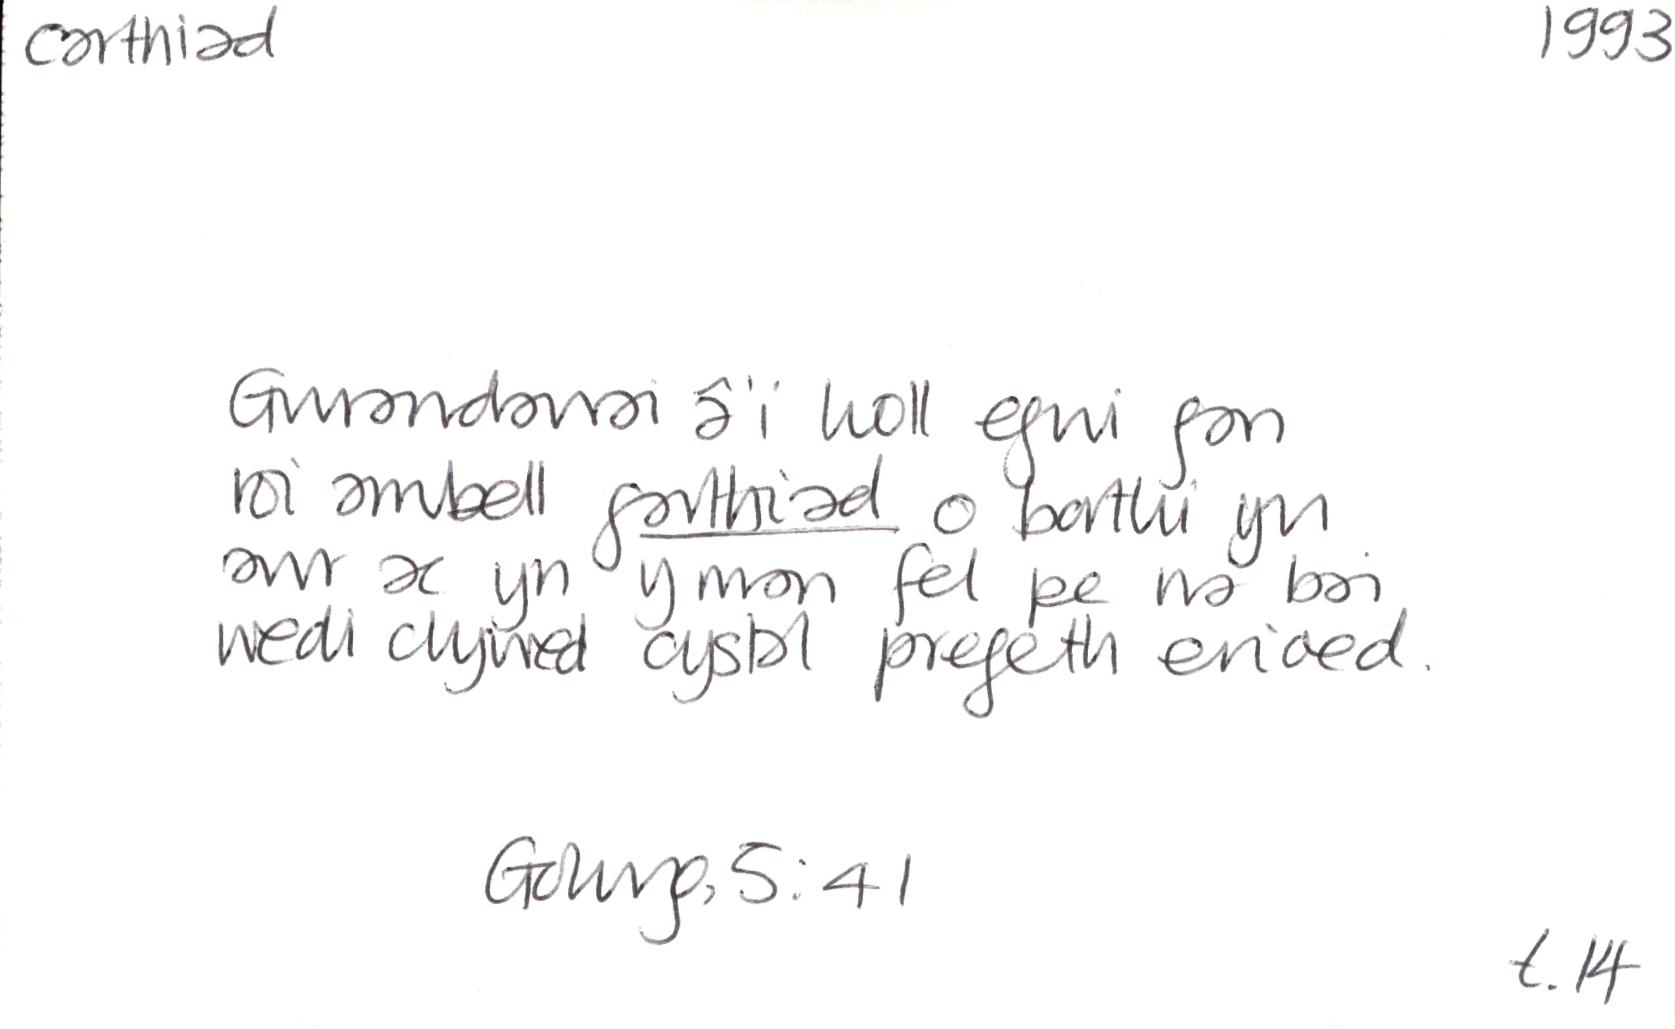 carthiad 1993
Gwrandawai â'i holl egni gan
roi ambell garthiad o borthi yn
awr ac yn y man fel pe na bai
wedi clywed cystal pregeth erioed.
Golwg, 5:41
t. 14